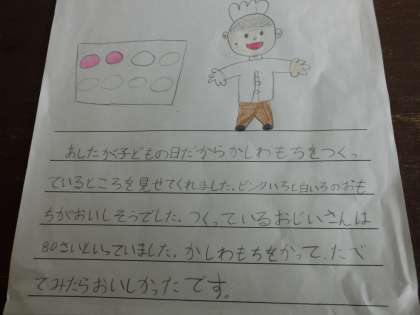 あしたが子どもの日だからかしわもちをつくっ
ているところを見せてくれました。ピンクいろと白いろのおも
ちがおいしそうでした。つくっているおじいさんは
80さいといっていました。かしわもちをかって、たべ
てみたらおいしかったです。